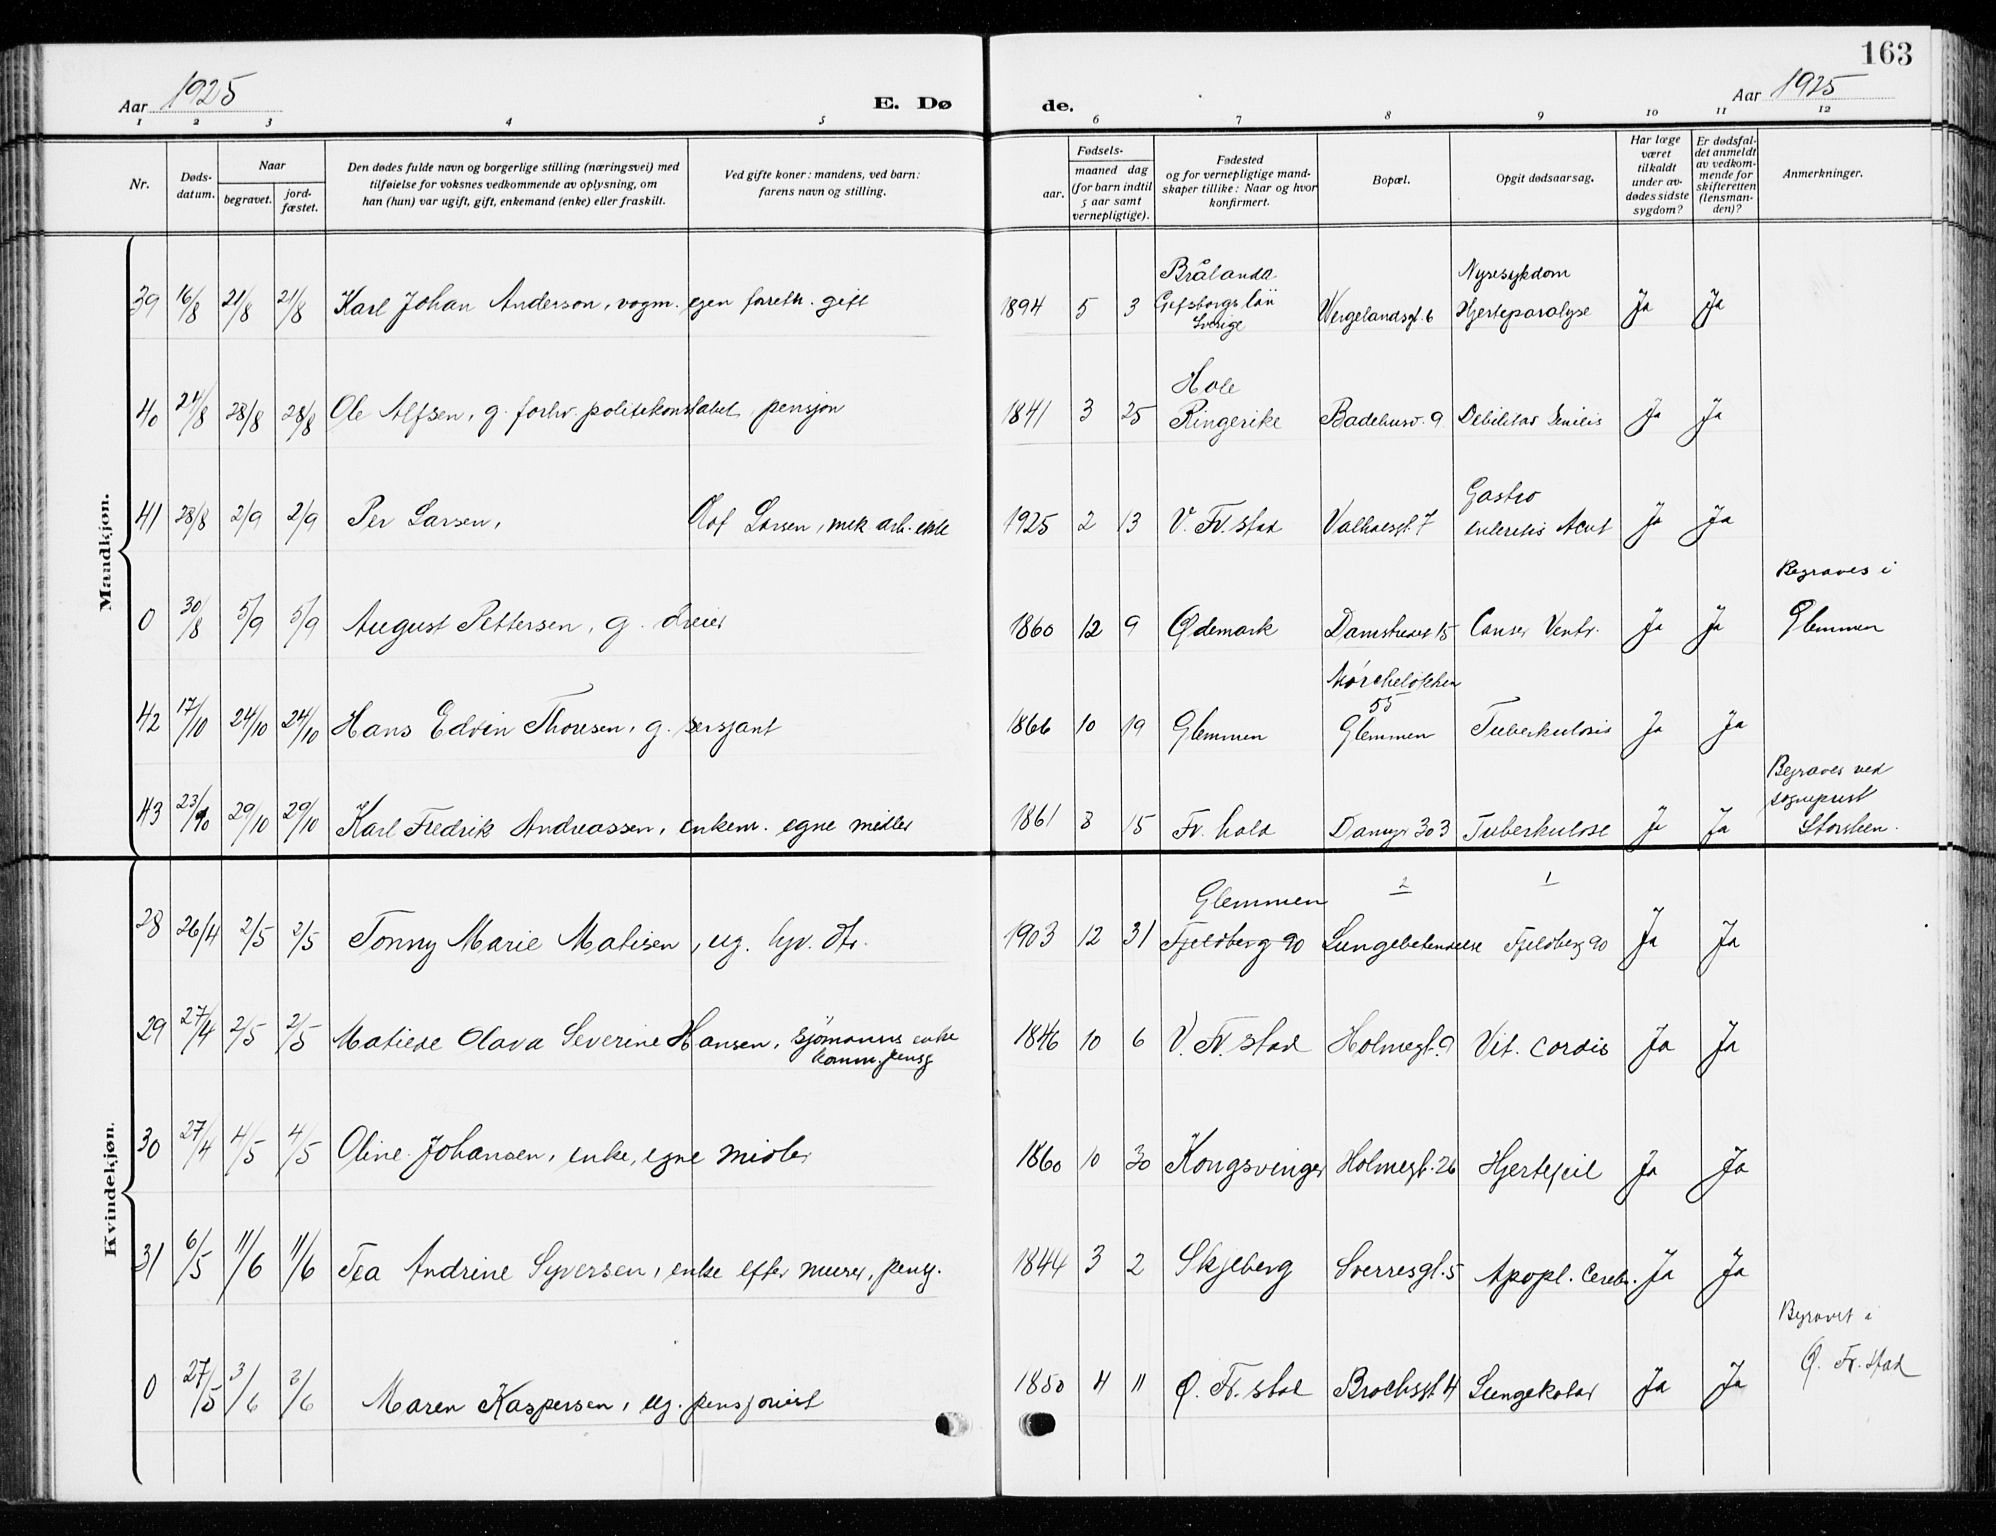 163
Aar 1925 E. Dø de. Aar 1925
1 2 3 4 5 6 7 8 9 10 11 12
Nr. Døds-datum. Naar begravet. jord-fæstet. Den dødes fulde navn og borgerlige stilling (næringsvei) med tilføielse for voksnes vedkommende av oplysning, om han (hun) var ugift, gift, enkemand (enke) eller fraskilt. Ved gifte koner: mandens, ved barn: farens navn og stilling. Fødsels- aar. maaned dag (for barn indtil 5 aar samt vernepligtige). Fødested og for vernepligtige mand-skaper tillike: Naar og hvor konfirmert. Bopæl. Opgit dødsaarsag. Har læge været tilkaldt under av-dødes sidste sygdom? Er dødsfal-det anmeldt av vedkom-mende for skifteretten (lensman-den)? Anmerkninger.
Mandkjøn.
39 16/8 21/8 21/8 Karl Johan Anderson, vogm. egen forretn. gift 1894 5 3 Brålanda Elfsborgs län Sverige Wergelandsgt. 6 Nyresykdom Hjerteparalyse Ja Ja
40 24/8 28/8 28/8 Ole Alfsen, g. forhv. politikonstabel, pensjon 1841 3 25 Hole Ringerike Badehusv. 9 Debilitas Senilis Ja Ja
41 28/8 2/9 2/9 Per Larsen, Olof Larsen, mek arb. ekte 1925 2 13 V. Fr. stad Valhalsgt. 7 Gastro enteritis Acut Ja Ja
0 30/8 5/9 5/9 August Pettersen, g. dreier 1860 12 9 Ødemark Damstredet 15 Canser Ventr. Ja Ja Begraves i Glemmen
42 17/10 24/10 24/10 Hans Edvin Thoresen, g. sersjant 1866 10 19 Glemmen Mørcheløkken 55 Glemmen Tuberkulosis Ja Ja
43 23/10 29/10 29/10 Karl Fredrik Andreassen, enkem. egne midler 1861 8 15 Fr. hald Damyr 303 Tuberkulose Ja Ja Begraves ved sogneprest Storsteen.
Kvindekjøn.
28 26/4 2/5 2/5 Tonny Marie Matisen, ug. hjv. dtr. 1903 12 31 Glemmen Fjeldberg 90 2 Lungebetendelse 1 Fjeldberg 90 Ja Ja
29 27/4 2/5 2/5 Matilde Olava Severine Hansen, sjømanns enke komm. pensj 1846 10 6 V. Fr. stad Holmegt. 9 Vit. cordis Ja Ja
30 27/4 4/5 4/5 Oline Johansen, enke, egne midler 1860 10 30 Kongsvinger Holmegt. 26 Hjertefeil Ja Ja
31 6/5 11/6 11/6 Tea Andrine Syversen, enke efter murer, pensj. 1844 3 2 Skjeberg Sverresgt. 5 Apopl. Cerebr. Ja Ja
0 27/5 3/6 3/6 Maren Kaspersen, ug. pensjonist 1850 4 11 Ø. Fr. stad Brochsgt 4 Lungekatar Ja Ja Begravet i Ø. Fr. stad